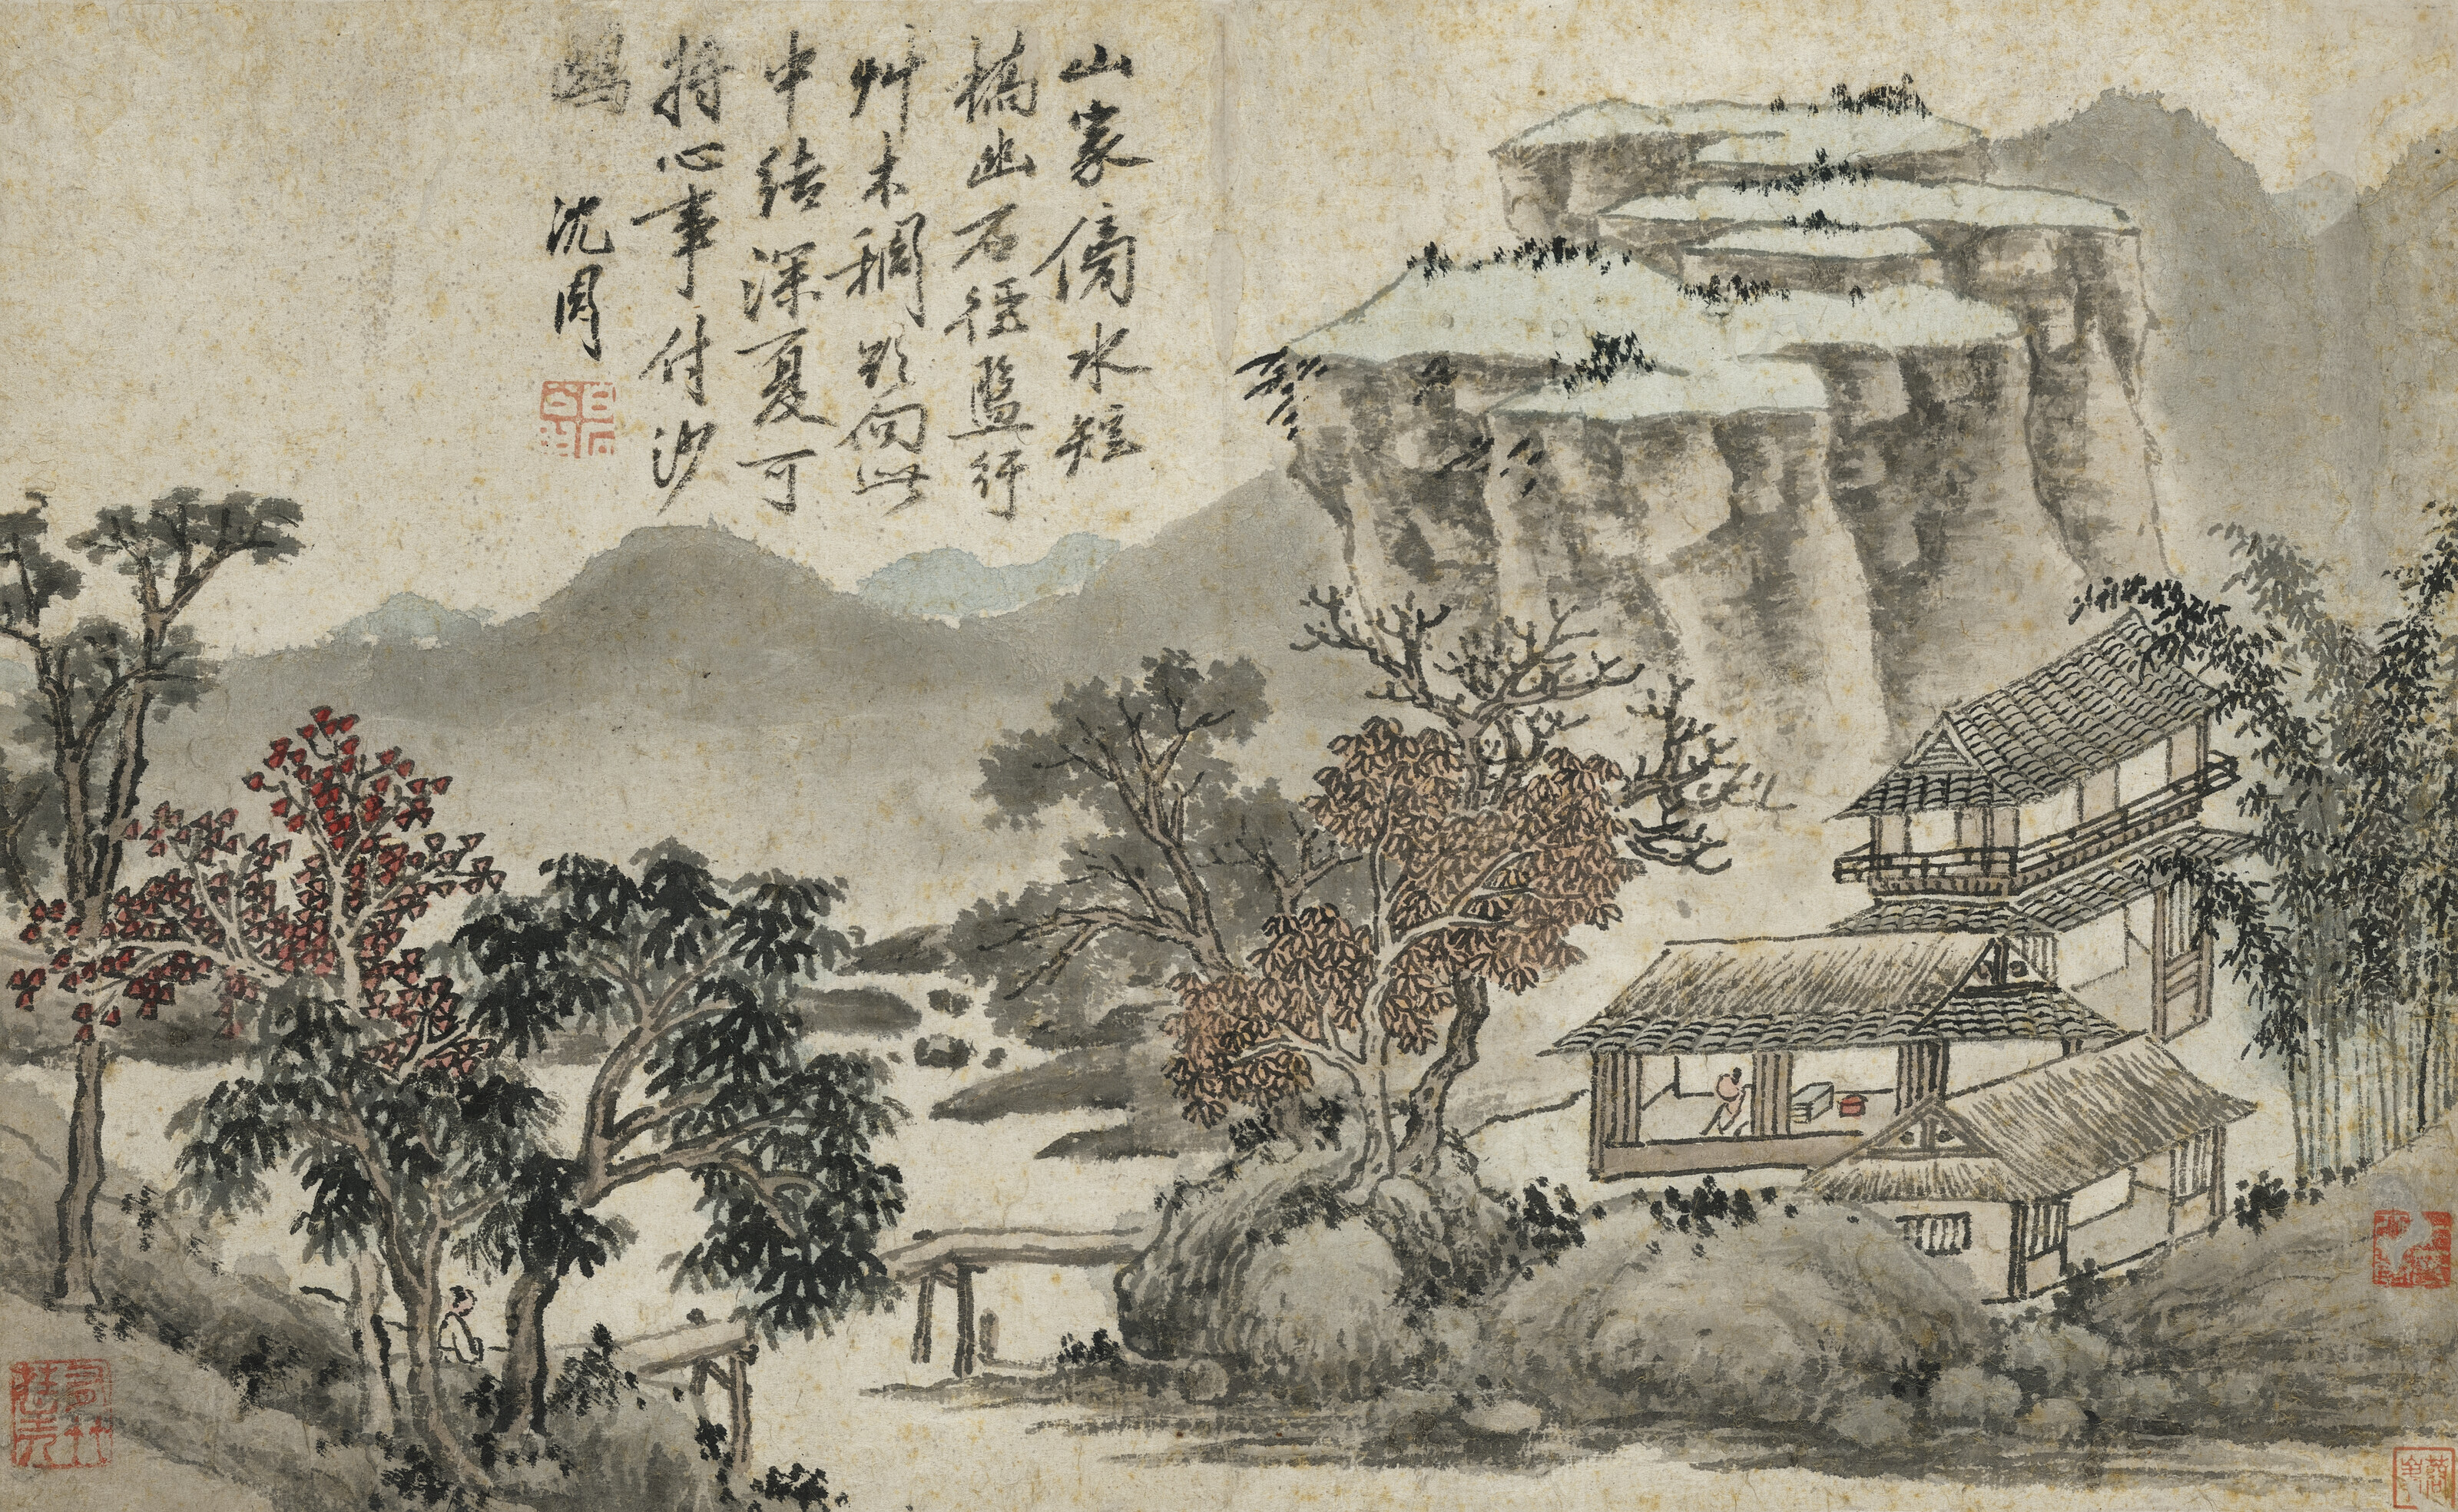 山家傍水短
橋幽石徑行
艸木稠欲向此
中結深夏可
將心事付沙
鷗 沈周